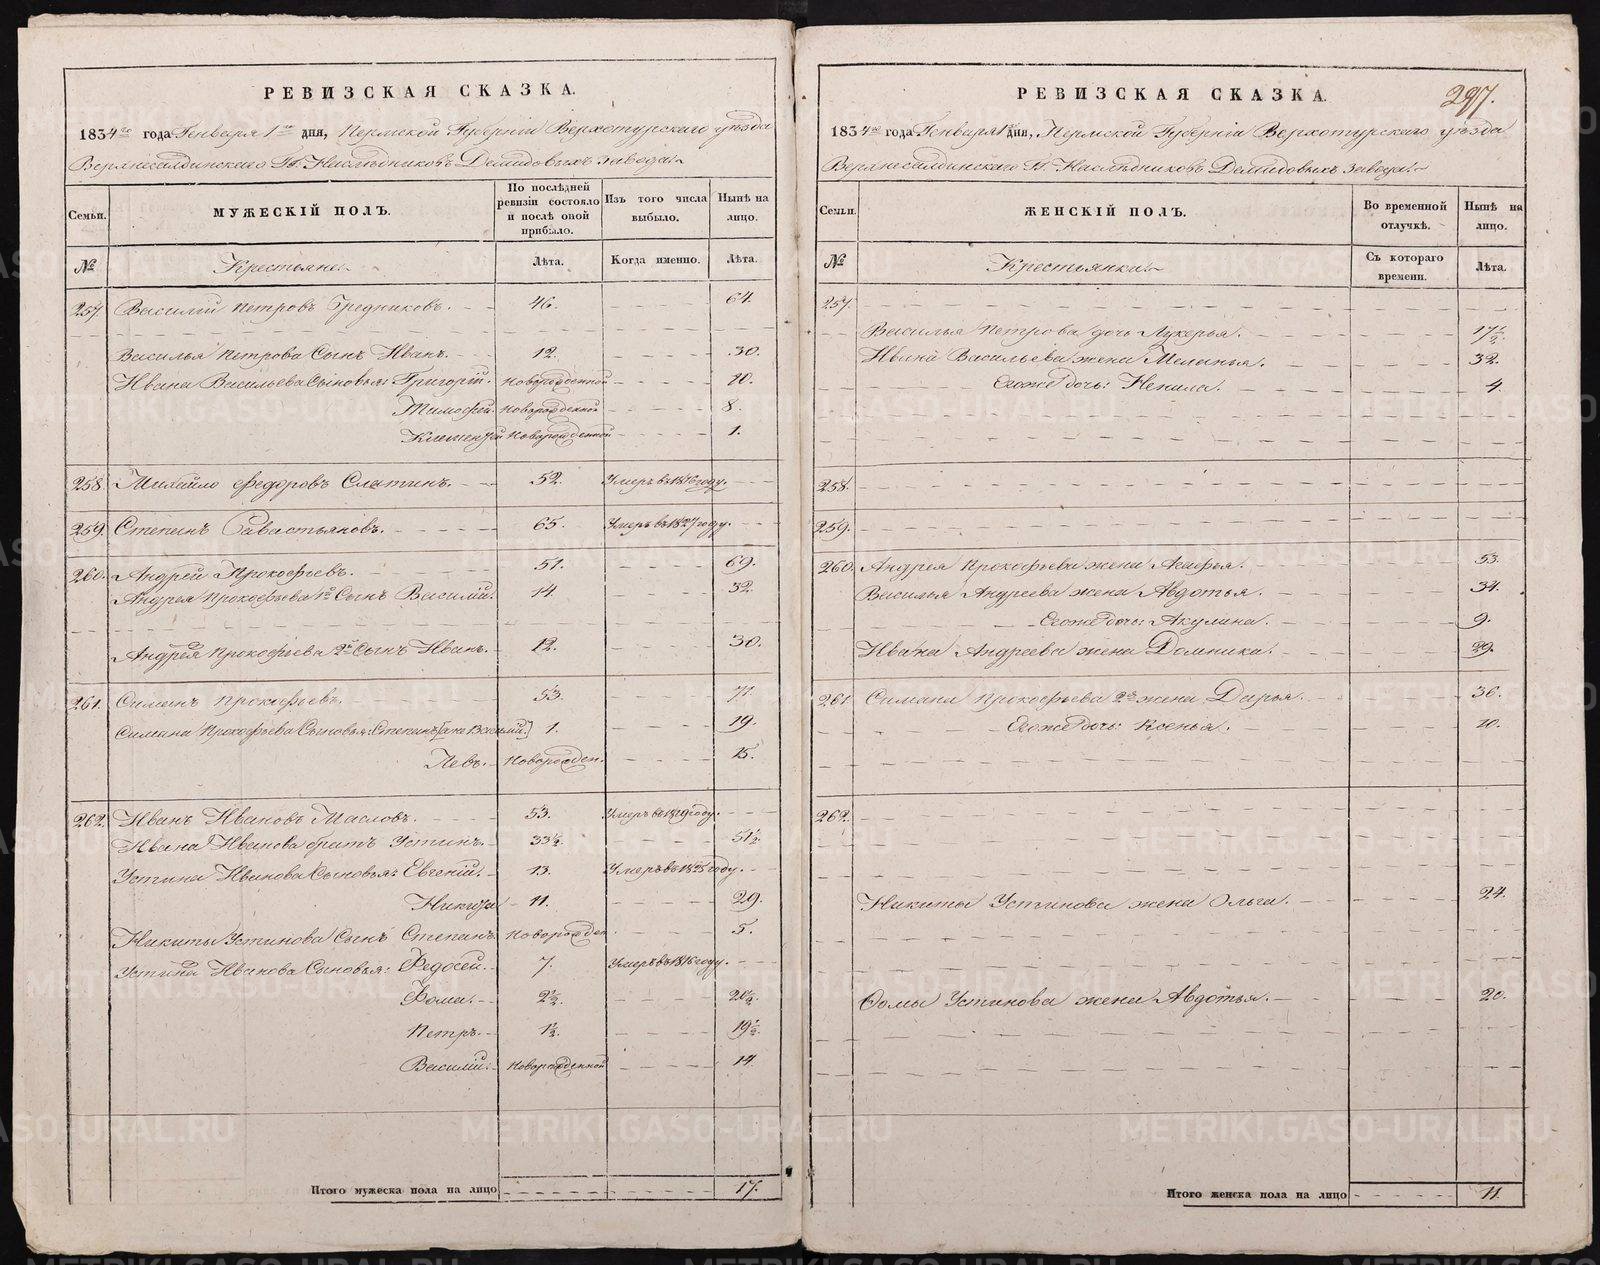 РЕВИЗСКАЯ СКАЗКА.
1834го года Генваря 1го дня, Пермской Губернiи Верхотурскаго уѣзда
Верхнесалдинскаго Гг. Наслѣдниковъ Демидовыхъ завода.
Семьи.
МУЖЕСКIЙ ПОЛЪ.
По послѣдней ревизiи состояло и послѣ оной прибыло.
Изъ того числа выбыло.
Нынѣ на лицо.
№ Крестьяне. Лѣта. Когда именно. Лѣта.
257. Василiй Петровъ Средниковъ. 46. 64.
Василья Петрова Сынъ Иванъ. 12. 30.
Ивана Васильева Сыновья: Григорiй. Новорожденной 10.
Тимофей. Новорожденной 8.
Климентiй Новорожденной 1.
258. Михайло Федоровъ Слатинъ. 52. Умеръ въ 1816 году.
259. Степанъ Савастьяновъ. 65. Умеръ въ 1827 году.
260. Андрей Прокофьевъ. 51. 69.
Андрея Прокофьева 1й Сынъ Василiй. 14. 32.
Андрея Прокофьева 2й Сынъ Иванъ. 12. 30.
261. Симанъ Прокофьевъ. 53. 71.
Симана Прокофьева Сыновья: Степанъ [а не Василiй] 1. 19.
Левъ. Новорожден. 15.
262. Иванъ Ивановъ Масловъ. 53. Умеръ въ 1819 году.
Ивана Иванова братъ Устинъ. 33½. 51½.
Устина Иванова Сыновья: Евгенiй. 13. Умеръ въ 1825 году.
Никита 11. 29.
Никиты Устинова Сынъ Степанъ Новорожден 5.
Устина Иванова Сыновья: Федосей. 7. Умеръ въ 1816 году.
Фома. 2½. 20½.
Петръ. 1½. 19½.
Василiй. Новорожденной 14.
Итого мужеска пола на лицо 17.
297.
РЕВИЗСКАЯ СКАЗКА.
1834го года Генваря 1го дня, Пермской Губернiи Верхотурскаго уѣзда
Верхнесалдинскаго Гг. Наслѣдниковъ Демидовыхъ завода.
Семьи.
ЖЕНСКIЙ ПОЛЪ.
Во временной отлучкѣ.
Нынѣ на лицо.
№ Крестьянки. Съ котораго времени. Лѣта.
257.
Василья Петрова дочь Лукерья. 17½.
Ивана Васильева жена Меланья. 32.
Егоже дочь: Ненила. 4.
258.
259.
260. Андрея Прокофьева жена Агафья. 53.
Василья Андреева жена Авдотья. 34.
Егоже дочь: Акулина. 9.
Ивана Андреева жена Домника. 29.
261 Симана Прокофьева 2я жена Дарья. 36.
Егоже дочь: Ксенья. 10.
262.
Никиты Устинова жена Ольга. 24.
Фомы Устинова жена Авдотья. 20.
Итого женска пола на лицо 11.
METRIKI.GASO-URAL.RU